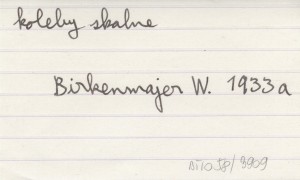 koleby skalne
Birkenmajer W. 1933a
3909